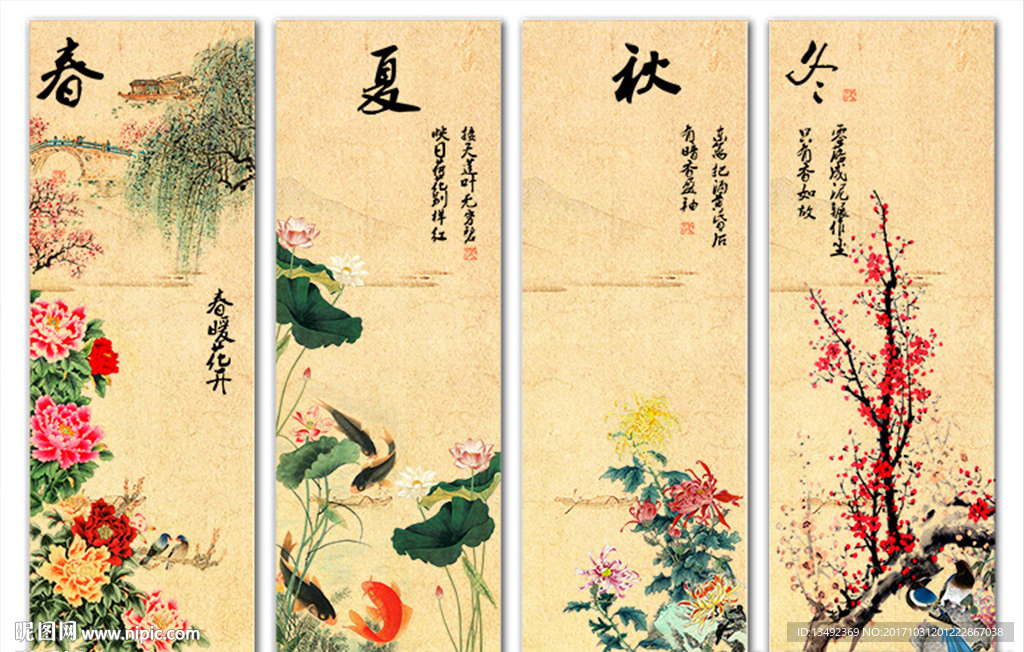 春
春暖花开
夏
接天莲叶无穷碧
映日荷花别样红
秋
东篱把酒黄昏后
有暗香盈袖
冬
零落成泥辗作尘
只有香如故
昵图网 www.nipic.com
ID:13492369 NO:20171031201222867038